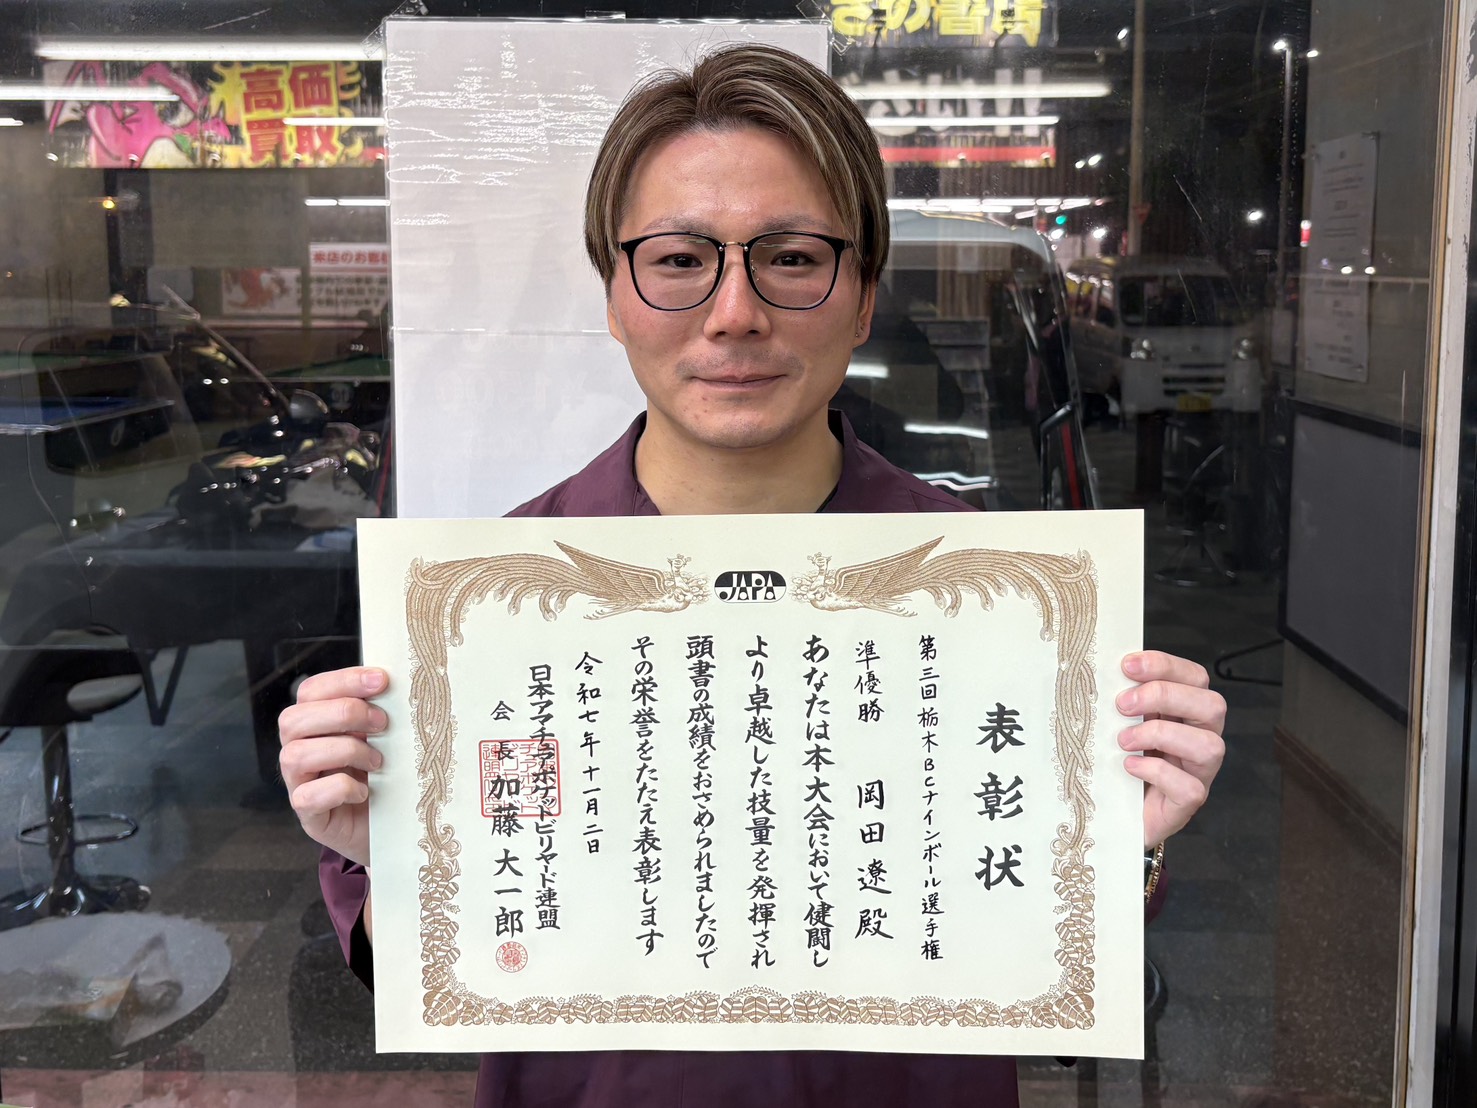 JAPA
表彰状
第三回栃木BCナインボール選手権
準優勝 岡田遼殿
あなたは本大会において健闘し
より卓越した技量を発揮され
頭書の成績をおさめられましたので
その栄誉をたたえ表彰します
令和七年十一月二日
日本アマチュアポケットビリヤード連盟
会長 加藤大一郎
きの書店
高価
買取
来店のお客様